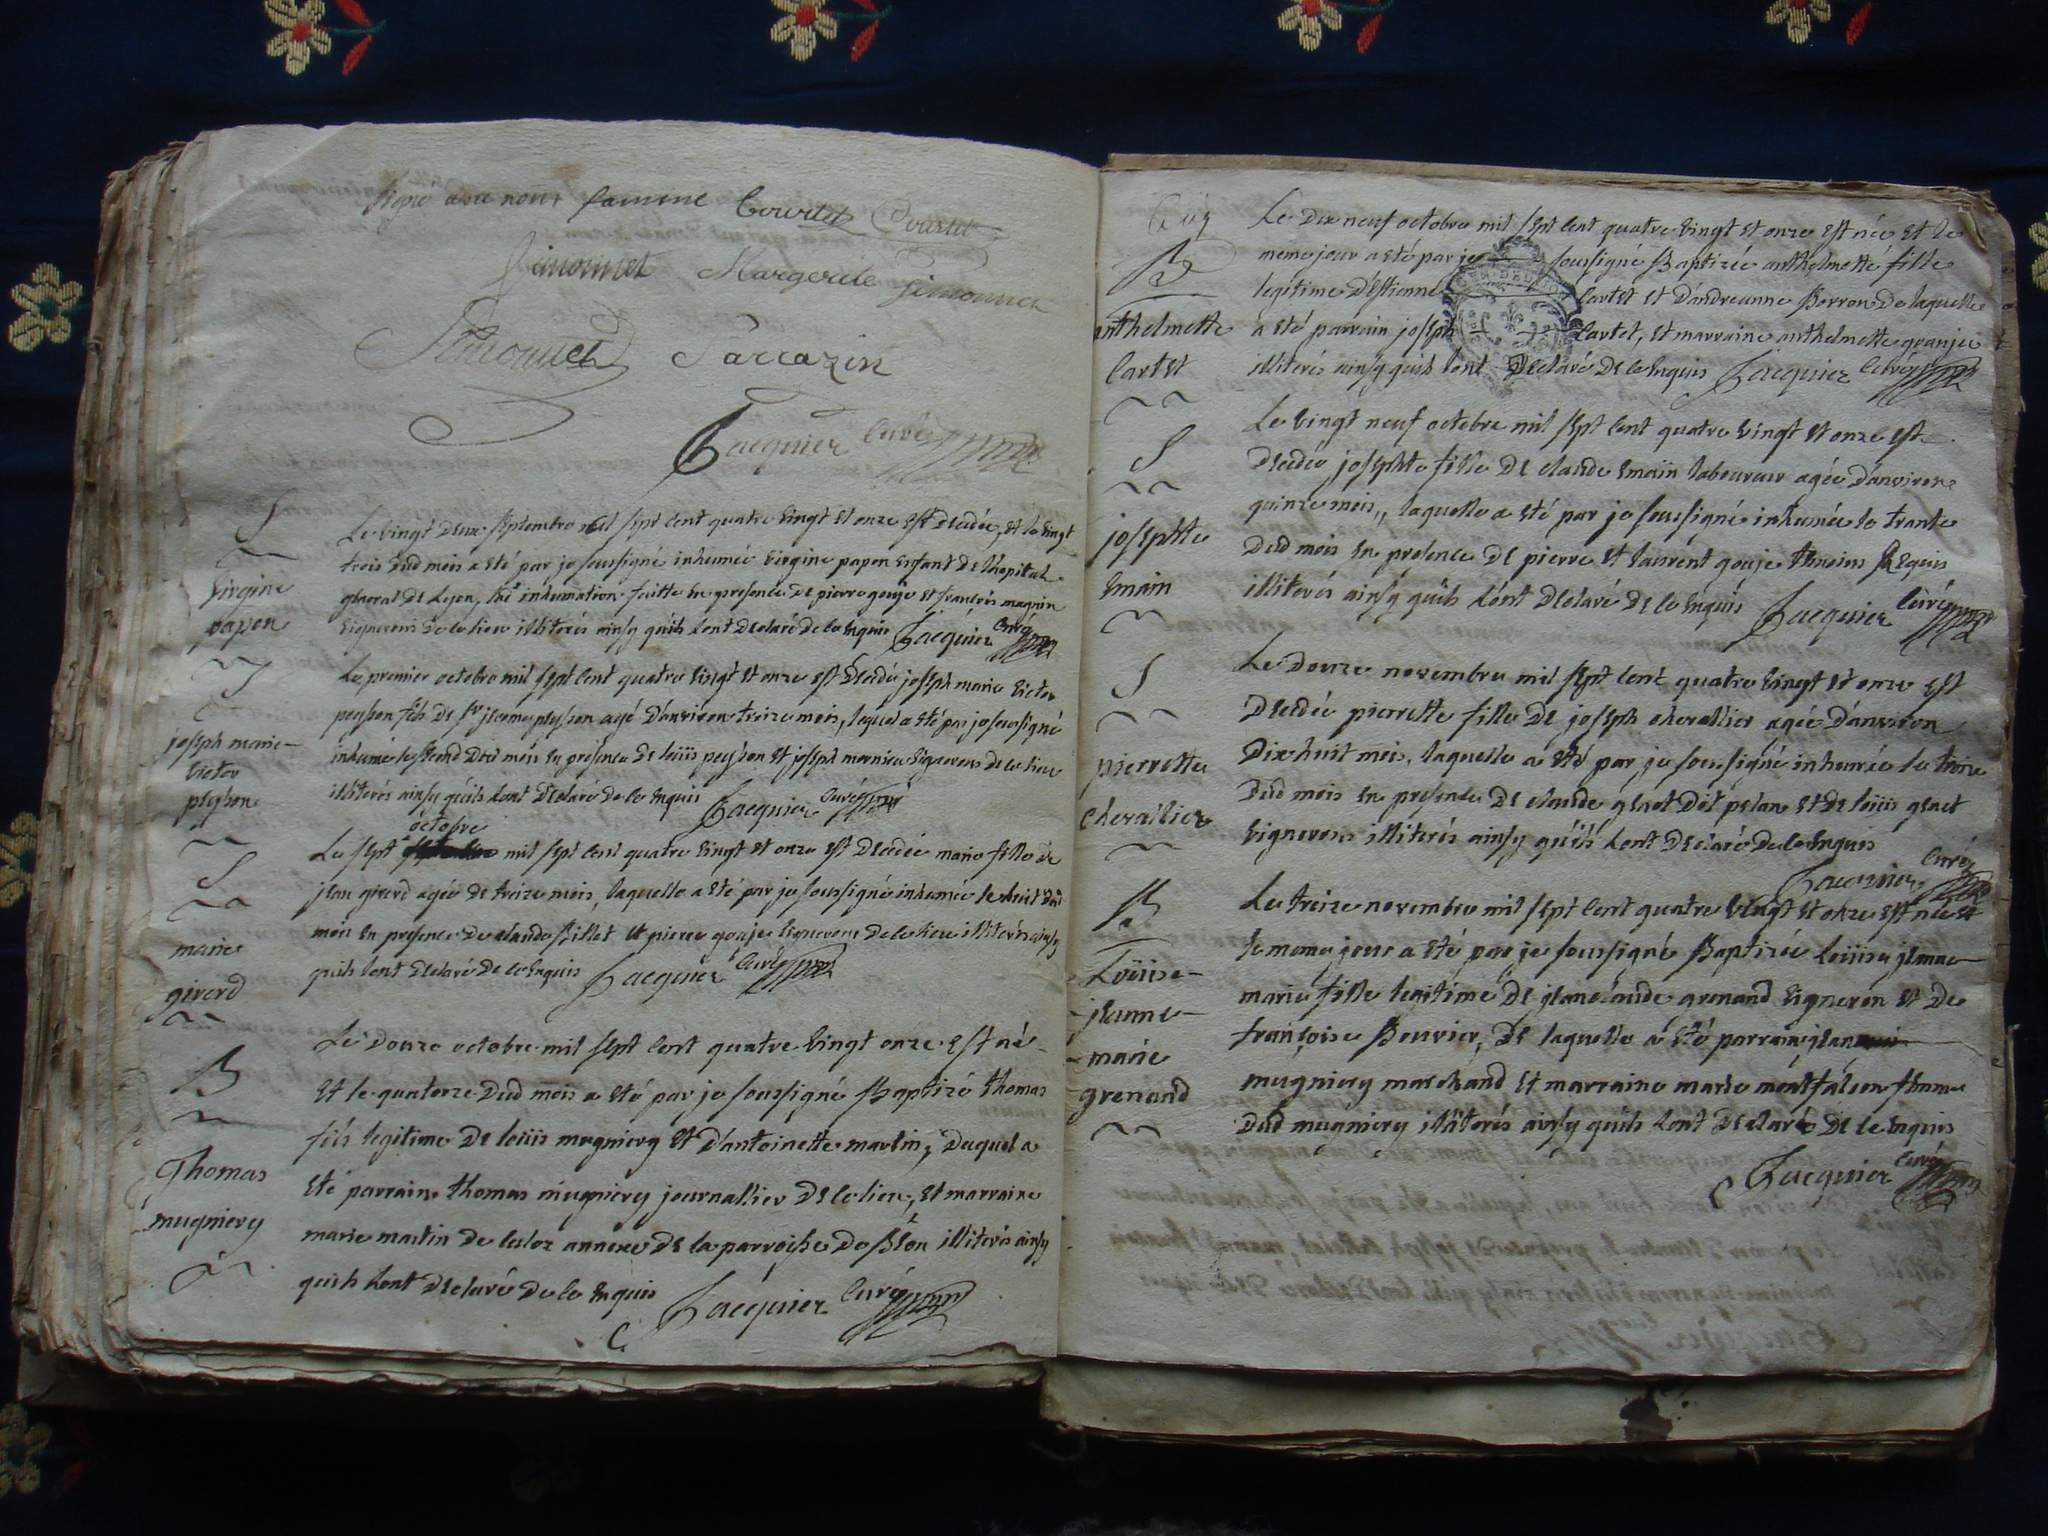 signé avec nous
Sarrazin
Jacquier curé
S
virgine
papon
Le vingt deux septembre mil sept cent quatre vingt et onze est decedée, et le vingt
trois dud mois a eté par je soussigné inhumée virgine papon enfant de l'hopital
general de Lyon, lad inhumation faitte en presence de pierre gouje et francois magnin
vignerons de ce lieu illiterés ainsy quils lont declaré de ce enquis Jacquier curé
S
joseph marie
victor
peysson
Le premier octobre mil sept cent quatre vingt et onze est decedé joseph marie victor
peysson fils de Sr jerome peysson agé d'anviron treize mois, lequel a eté par je soussigné
inhumé le second dud mois en présence de loüis peysson et joseph mornieu vignerons de ce lieu
illiterés ainsy quils lont declaré de ce enquis Jacquier curé
S
marie
girerd
octobre
Le sept mil sept cent quatre vingt et onze est decedée marie fille de
jean girerd agée de treize mois, laquelle a eté par je soussigné inhumée le huit dud
mois en presence de claude Billet et pierre gouje vignerons de ce lieu illiterés ainsy
quils lont declaré de ce enquis Jacquier curé
B
Thomas
mugniery
Le douze octobre mil sept cent quatre vingt onze est né
et le quatorze dud mois a eté par je soussigné Baptizé thomas
fils legitime de loüis mugniery et d'antoinette martin, duquel a
eté parrain thomas mugniery journallier de ce lieu, et marraine
marie martin de annexe de la parroisse de illiterés ainsy
quils lont declaré de ce enquis Jacquier curé
B
anthelmette
Cartet
Le dix neuf octobre mil sept cent quatre vingt et onze est née et le
meme jour a eté par je soussigné Baptizée anthelmette fille
legitime d'Estienne Cartet et d'andreanne Berron de laquelle
a eté parrain joseph Cartet, et marraine anthelmette granjei
illiterés ainsy quils lont declaré de ce enquis Jacquier curé
S
josephte
emain
Le vingt neuf octobre mil sept cent quatre vingt et onze est
decedée josephte fille de claude emain laboureur agée d'anviron
quinze mois, laquelle a eté par je soussigné inhumée le trante
dud mois en presence de pierre et laurent gouje temoins Requis
illiterés ainsy quils lont declaré de ce enquis Jacquier curé
S
pierrette
chevallier
Le douze novembre mil sept cent quatre vingt et onze est
decedée pierrette fille de joseph chevallier agée d'anviron
dix huit mois, laquelle a eté par je soussigné inhumée le treize
dud mois en presence de claude genet dit pelan et de loüis genet
vignerons illiterés ainsy quils lont declaré de ce enquis
Jacquier curé
B
Loüise
jeanne
marie
grenand
Le treize novembre mil sept cent quatre vingt et onze est née et
le meme jour a eté par je soussigné Baptizée loüise jeanne
marie fille legitime de jean claude grenand vigneron et de
françoise Bouvier, de laquelle a eté parrain jean
mugniery marchand et marraine marie montfalcon femme
dud mugniery illiterés ainsy quils lont declaré de ce enquis
Jacquier curé